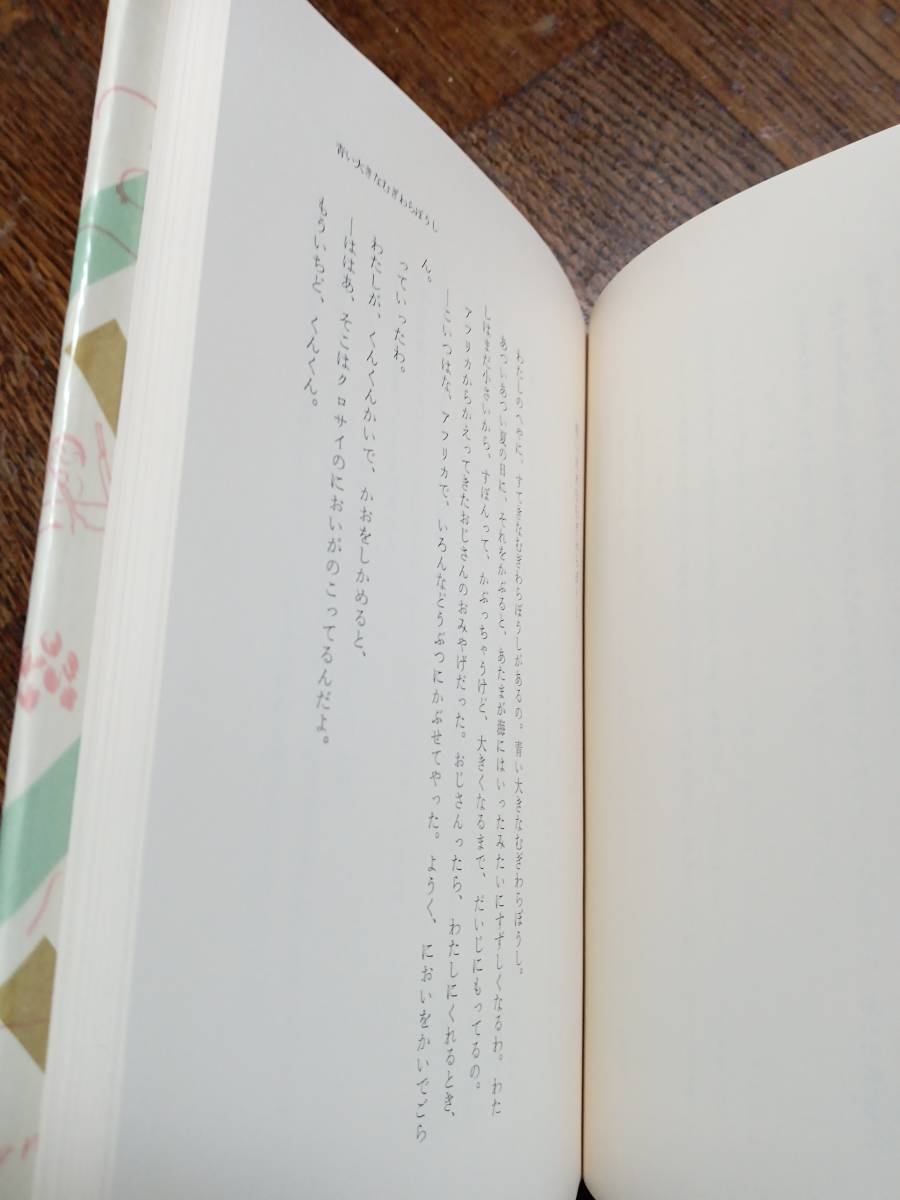 青い大きなむぎわらぼうし
わたしのへやに、すてきなむぎわらぼうしがあるの。青い大きなむぎわらぼうし。
あついあつい夏の日に、それをかぶると、あたまが海にはいったみたいにすずしくなるわ。わた
しはまだ小さいから、すぽんって、かぶっちゃうけど、大きくなるまで、だいじにもってるの。
アフリカからかえってきたおじさんのおみやげだった。おじさんったら、わたしにくれるとき、
―こいつはな、アフリカで、いろんなどうぶつにかぶせてやった。ようく、においをかいでごら
ん。
っていったわ。
わたしが、くんくんかいで、かおをしかめると、
―ははあ、そこはクロサイのにおいがのこってるんだよ。
もういちど、くんくん。